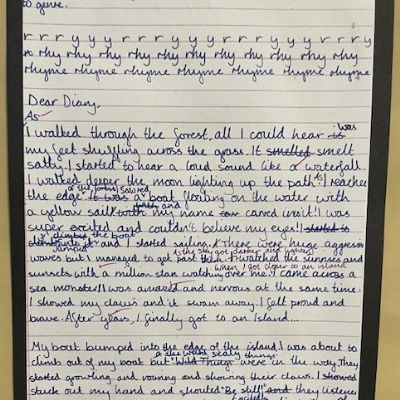 to genre.
r r r y y y r r r y y r r y y y r r y
rhy rhy rhy rhy rhy rhy rhy rhy rhy
rhyme rhyme rhyme rhyme rhyme rhyme rhyme
Dear Diary,
As
I walked through the forest, all I could hear is was
my feet shuffling across the grass. It smelled smelt
salty. I started to hear a loud sound like a waterfall.
I walked deeper the moon lighting up the path. As I reached
of the forest I saw red
the edge it was a boat floating on the water with
a yellow sail with and my name carved on it! I was
super excited and couldn't believe my eyes! I started to
climbed the boat
jumped and I started sailing. There were huge aggressive
As the sky got darker and lighter,
waves but I managed to get past them. I watched the sunrises and
when I got closer to an island
sunsets with a million stars watching over me. I came across a
sea monster! I was amazed and nervous at the same time.
I showed my claws and it swam away. I felt proud and
brave. After years, I finally got to an Island...
My boat bumped into the edge of the island! I was about to
scary things
climb out of my boat but Wild Things were in the way. They
started growling and roaring and showing their claws. I showed
stuck out my hand and shouted "Be still!" and they listened